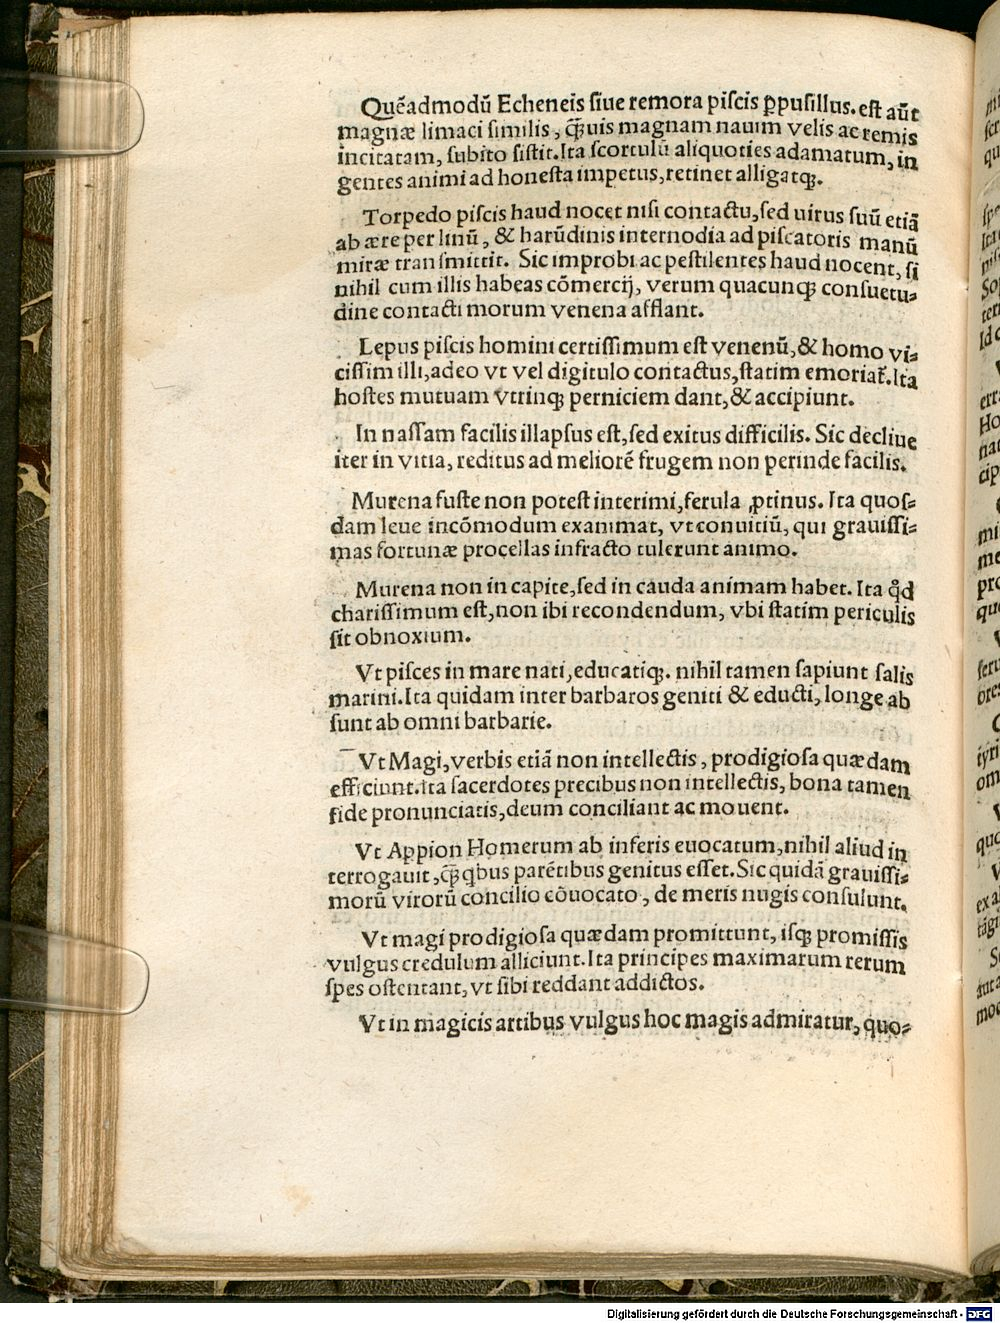 Quēadmodū Echeneis ſiue remora piſcis ꝑpuſillus. eſt aūt
magnæ limaci ſimilis, q̄uis magnam nauim velis ac remis
incitatam, ſubito ſiſtit. Ita ſcortulū aliquoties adamatum, in
gentes animi ad honeſta impetus, retinet alligatq;.
Torpedo piſcis haud nocet niſi contactu, ſed uirus ſuū etiā
ab ære per linū, & harūdinis internodia ad piſcatoris manū
miræ tranſmittit. Sic improbi ac peſtilentes haud nocent, ſi
nihil cum illis habeas cōmercij, verum quacunq; conſuetu⸗
dine contacti morum venena afflant.
Lepus piſcis homini certiſſimum eſt venenū, & homo vi⸗
ciſſim illi, adeo vt vel digitulo contactus, ſtatim emoriat᷑. Ita
hoſtes mutuam vtrinq; perniciem dant, & accipiunt.
In naſſam facilis illapſus eſt, ſed exitus difficilis. Sic decliue
iter in vitia, reditus ad meliorē frugem non perinde facilis.
Murena fuſte non poteſt interimi, ferula ꝓtinus. Ita quoſ⸗
dam leue incōmodum exanimat, vt conuitiū, qui grauiſſi⸗
mas fortunæ procellas infracto tulerunt animo.
Murena non in capite, ſed in cauda animam habet. Ita q̄d
chariſſimum eſt, non ibi recondendum, vbi ſtatim periculis
ſit obnoxium.
Vt piſces in mare nati, educatiq;. nihil tamen ſapiunt ſalis
marini. Ita quidam inter barbaros geniti & educti, longe ab
ſunt ab omni barbarie.
Vt Magi, verbis etiā non intellectis, prodigioſa quædam
efficiunt. ita ſacerdotes precibus non intellectis, bona tamen
fide pronunciatis, deum conciliant ac mouent.
Vt Appion Homerum ab inferis euocatum, nihil aliud in
terrogauit, q̄ꝫ qbus parētibus genitus eſſet. Sic quidā grauiſſi⸗
morū virorū concilio cōuocato, de meris nugis conſulunt.
Vt magi prodigioſa quædam promittunt, iſq; promiſſis
vulgus credulum alliciunt. Ita principes maximarum rerum
ſpes oſtentant, vt ſibi reddant addictos.
Vt in magicis artibus vulgus hoc magis admiratur, quo⸗
Digitalisierung gefördert durch die Deutsche Forschungsgemeinschaft - DFG